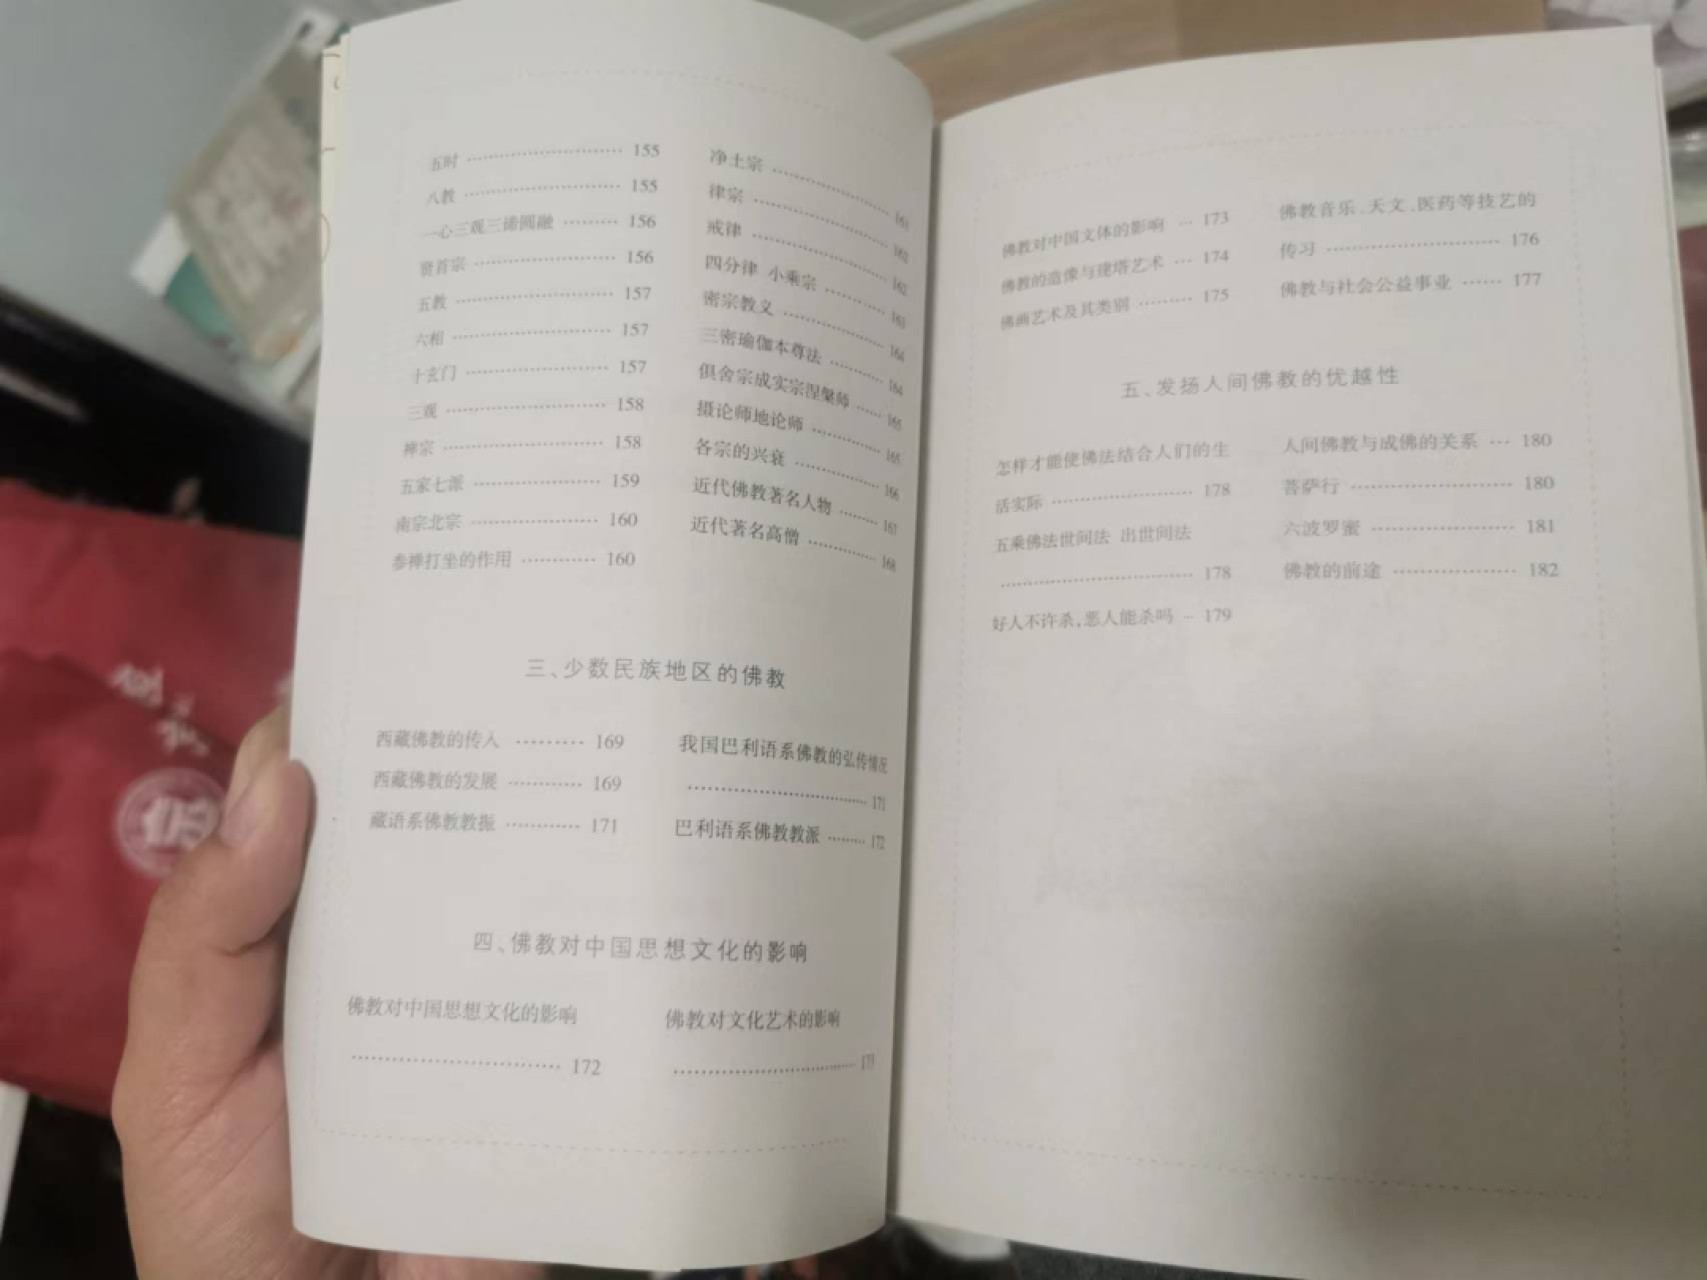 五时 ……………………… 155
八教 ……………………… 155
一心三观三谛圆融 ……… 156
贤首宗 …………………… 156
五教 ……………………… 157
六相 ……………………… 157
十玄门 …………………… 157
三观 ……………………… 158
禅宗 ……………………… 158
五家七派 ………………… 159
南宗北宗 ………………… 160
参禅打坐的作用 ………… 160
净土宗 …………………… 161
律宗 ……………………… 162
戒律 ……………………… 162
四分律 小乘宗 ………… 163
密宗教义 ……………… 164
三密瑜伽本尊法 ……… 164
俱舍宗成实宗涅槃师 …… 165
摄论师地论师 ………… 165
各宗的兴衰 …………… 166
近代佛教著名人物 ……… 167
近代著名高僧 ………… 168
三、少数民族地区的佛教
西藏佛教的传入 ……… 169
西藏佛教的发展 ………… 169
藏语系佛教教派 ………… 171
我国巴利语系佛教的弘传情况
……………………………… 171
巴利语系佛教教派 ……… 172
四、佛教对中国思想文化的影响
佛教对中国思想文化的影响
……………………………… 172
佛教对文化艺术的影响
……………………………… 173
佛教对中国文体的影响 … 173
佛教的造像与建塔艺术 … 174
佛画艺术及其类别 ……… 175
佛教音乐、天文、医药等技艺的
传习 ……………………… 176
佛教与社会公益事业 …… 177
五、发扬人间佛教的优越性
怎样才能使佛法结合人们的生
活实际 …………………… 178
五乘佛法世间法 出世间法
……………………………… 178
好人不许杀,恶人能杀吗 … 179
人间佛教与成佛的关系 … 180
菩萨行 …………………… 180
六波罗蜜 ………………… 181
佛教的前途 ……………… 182